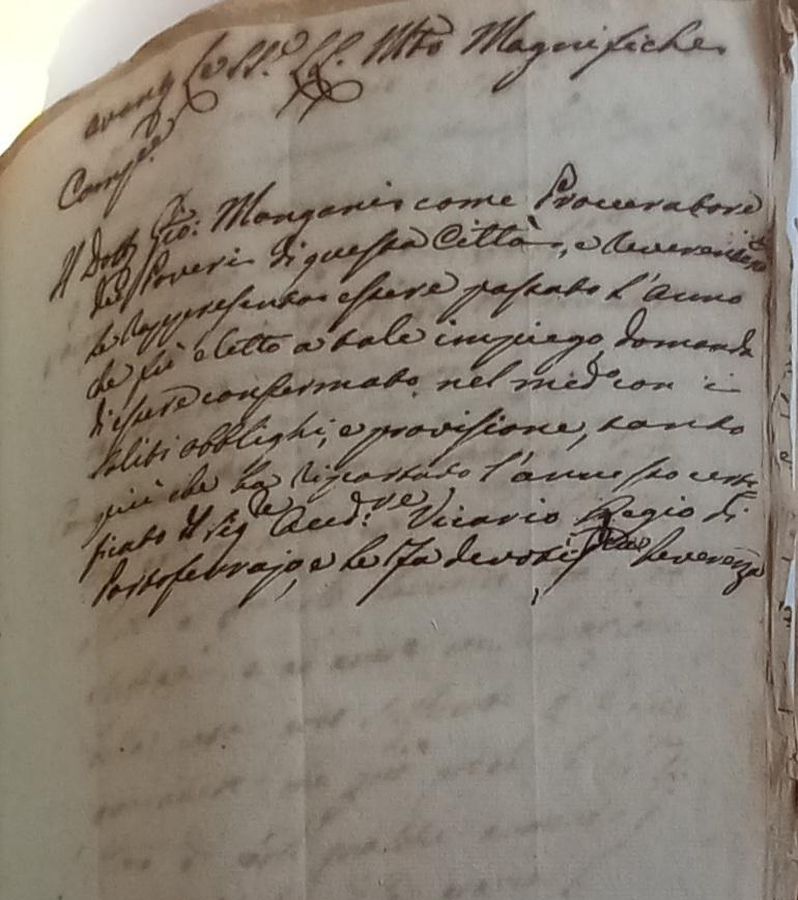 avanti Le SS.e LL. Mto Magnifiche
Comp.e
Il Dott. Gio: Manganis come Procuratore
dei Poveri di questa Città, e reverentem.e
le rappresenta essere passato l'Anno
che fù eletto a tale impiego, domanda
di essere confermato nel med.o con i
soliti obblighi, e provisione, tanto
più che ha riportato l'annesso certi
ficato il Sig.e Aud.re Vicario Regio di
Portoferrajo, e le fa devotis.ma reverenza